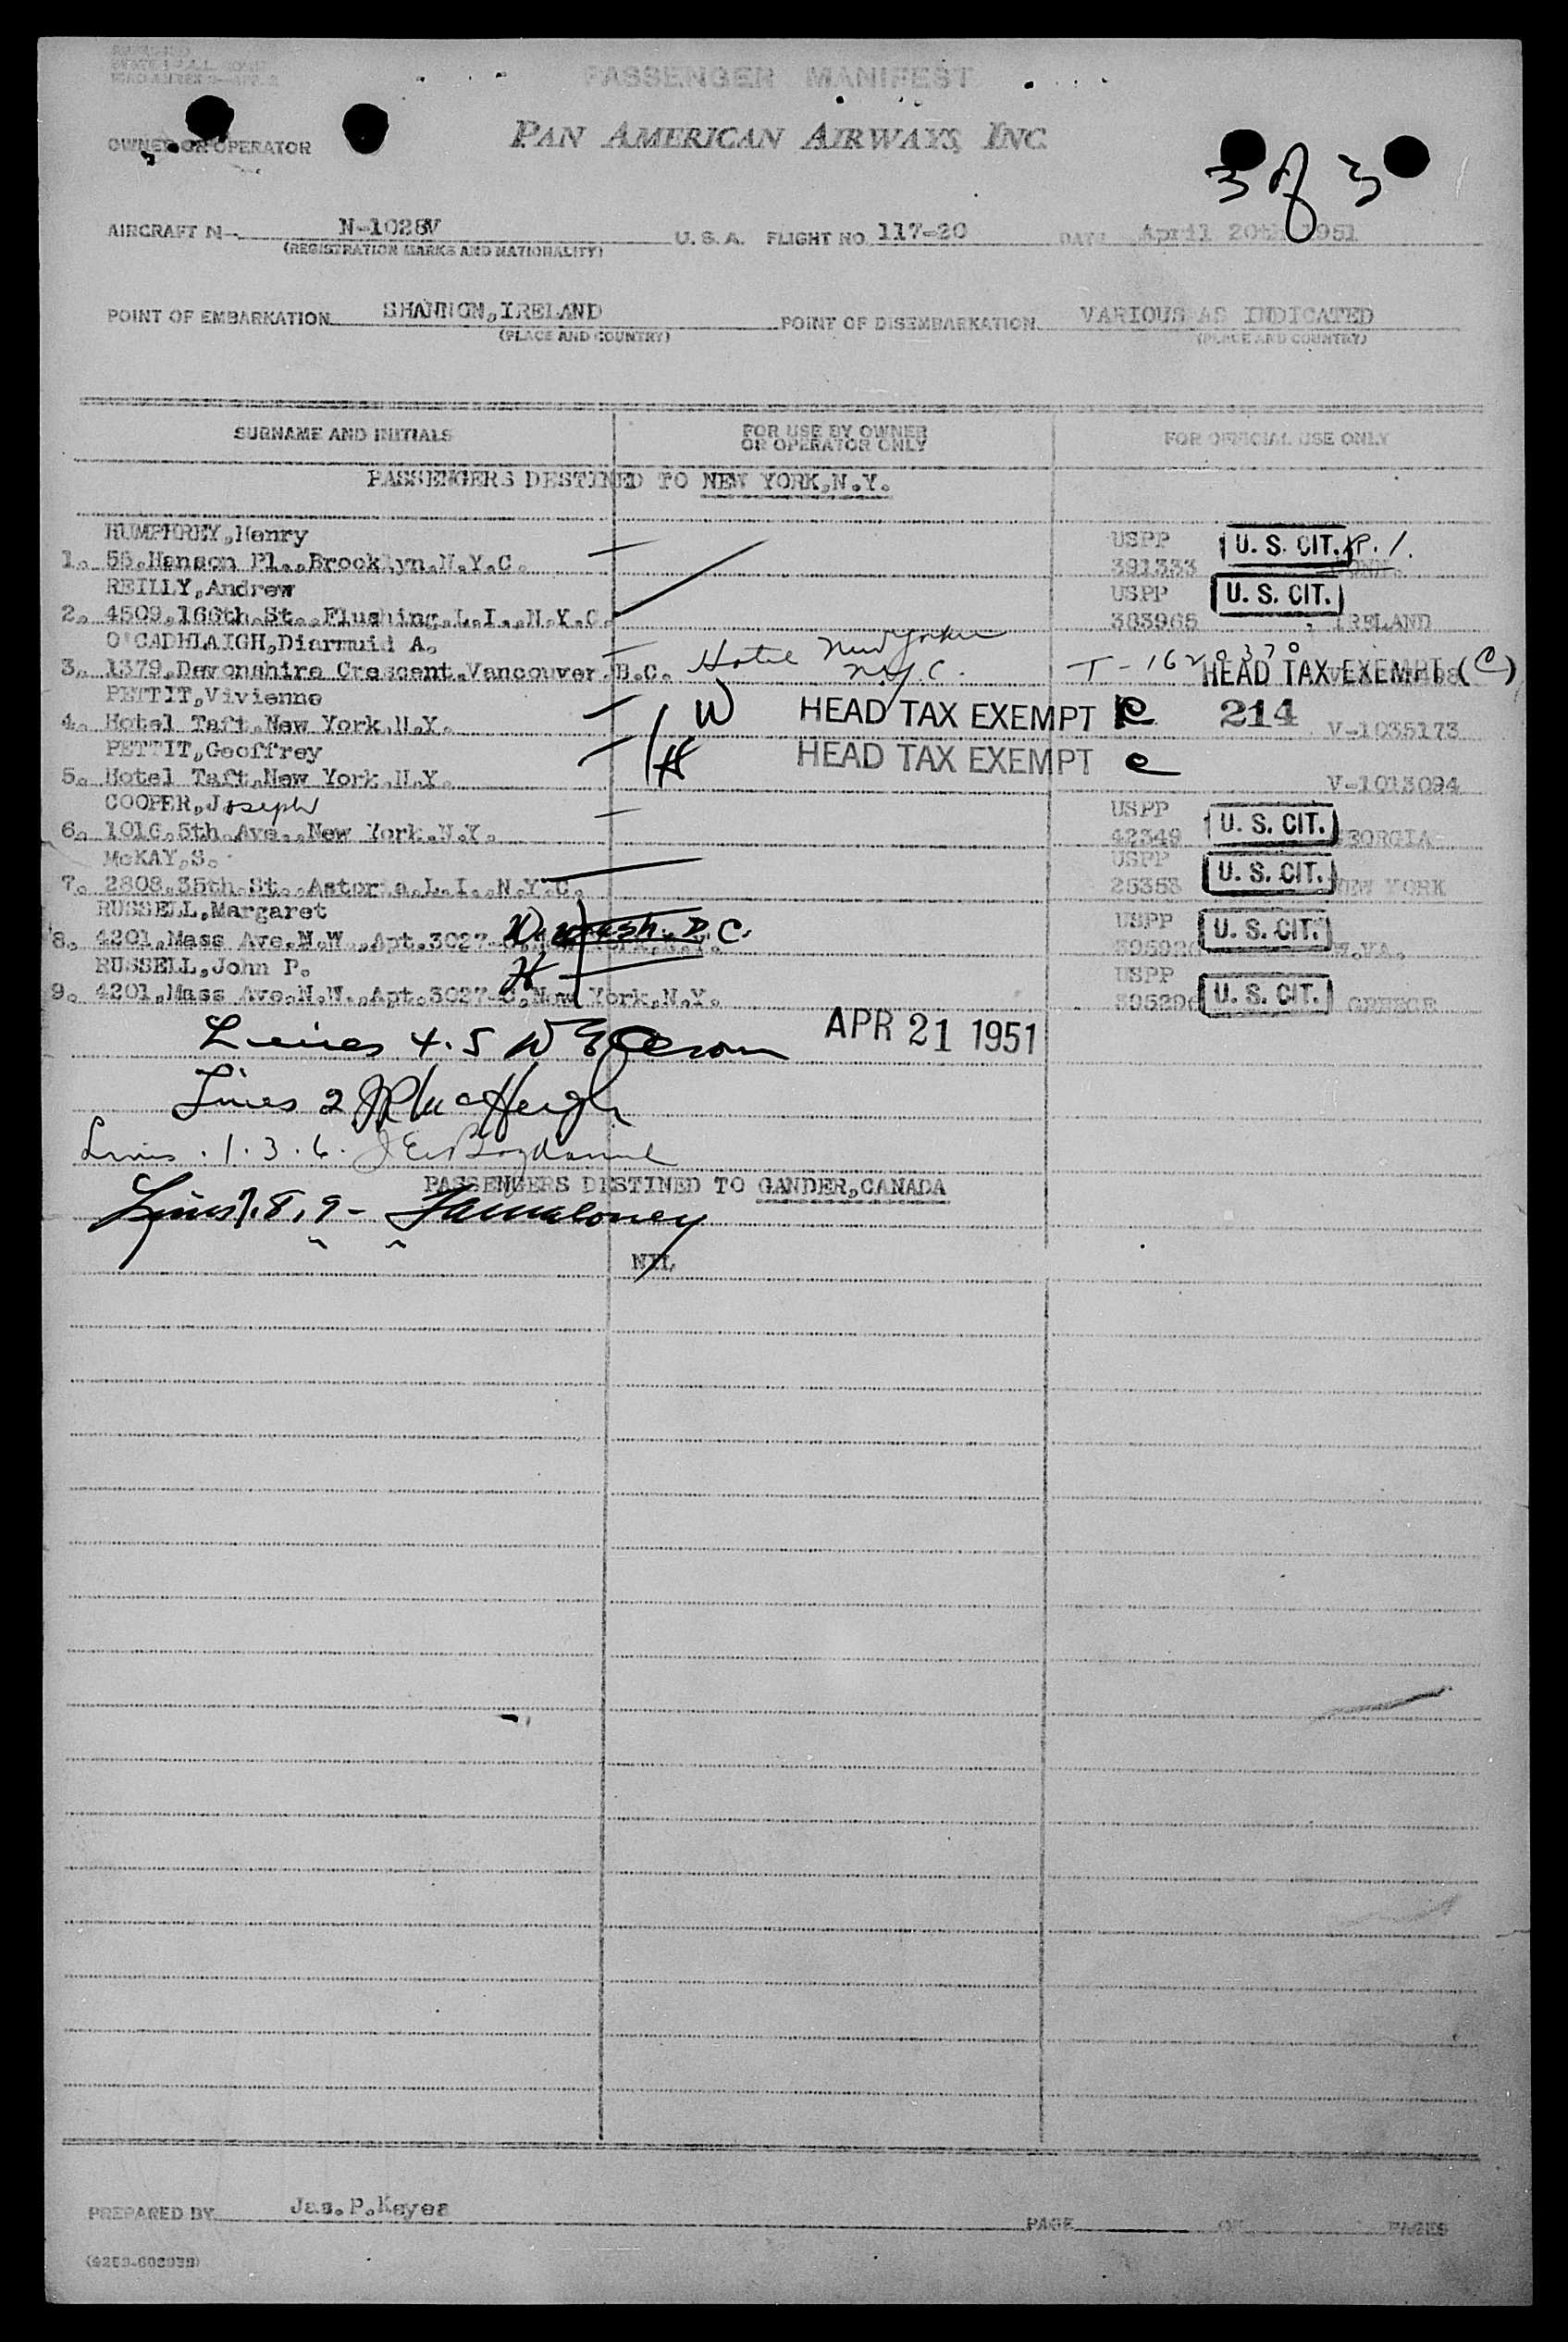 PASSENGER MANIFEST
OWNER OR OPERATOR
PAN AMERICAN AIRWAYS, INC.
3 of 3
AIRCRAFT N- N-1028V U. S. A. FLIGHT NO. 117-20 DATE April 20th 1951
(REGISTRATION MARKS AND NATIONALITY)
POINT OF EMBARKATION SHANNON,IRELAND POINT OF DISEMBARKATION VARIOUS AS INDICATED
(PLACE AND COUNTRY) (PLACE AND COUNTRY)
SURNAME AND INITIALS FOR USE BY OWNER OR OPERATOR ONLY FOR OFFICIAL USE ONLY
PASSENGERS DESTINED TO NEW YORK,N.Y.
HUMPHREY,Henry USPP U. S. CIT. P. 1.
1. 55,Hanson Pl.,Brooklyn.N.Y.C. 391333
REILLY,Andrew USPP U. S. CIT.
2. 4509,166th.St.,Flushing.L.I.,N.Y.C. 383965 IRELAND
O'CADHLAIGH,Diarmuid A. Hotel New Yorker
3. 1379,Devonshire Crescent.Vancouver.B.C. N.Y.C. T-1620370 HEAD TAX EXEMPT (C)
PETTIT,Vivienne W HEAD TAX EXEMPT C 214
4. Hotel Taft,New York,N.Y. V-1035173
PETTIT,Geoffrey H HEAD TAX EXEMPT C
5. Hotel Taft,New York,N.Y. V-1013094
COOPER,Joseph USPP U. S. CIT.
6. 1016,5th.Ave.,New York.N.Y. 42349 GEORGIA
McKAY,S. USPP U. S. CIT.
7. 2808,35th.St.,Astoria.L.I.,N.Y.C. 26353 NEW YORK
RUSSELL,Margaret W Wash. D.C. USPP U. S. CIT.
8. 4201,Mass Ave.N.W.,Apt.3027- W.VA.
RUSSELL,John P. H USPP U. S. CIT.
9. 4201,Mass Ave.N.W.,Apt.3027-C,New York,N.Y. GREECE
Lines 4.5 APR 21 1951
Lines 2
Lines .1.3.6.
PASSENGERS DESTINED TO GANDER,CANADA
Lines 7.8.9-
NIL
PREPARED BY Jas.P.Keyes PAGE OF PAGES